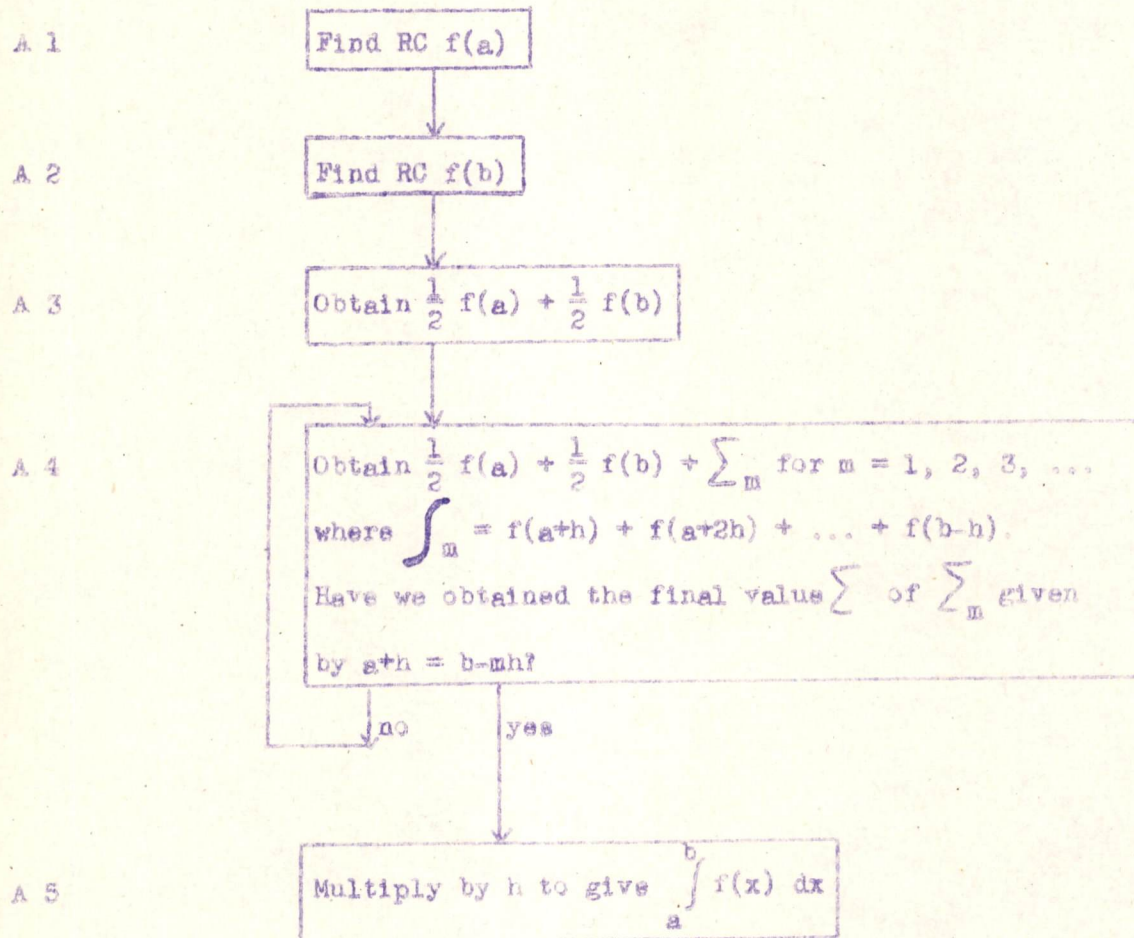 A 1 Find RC f(a)
A 2 Find RC f(b)
A 3 Obtain 1/2 f(a) + 1/2 f(b)
A 4 Obtain 1/2 f(a) + 1/2 f(b) + ∑m for m = 1, 2, 3, ...
where ∫m = f(a+h) + f(a+2h) + ... + f(b-h).
Have we obtained the final value ∑ of ∑m given
by a+h = b-mh?
no yes
A 5 Multiply by h to give ∫ₐᵇ f(x) dx